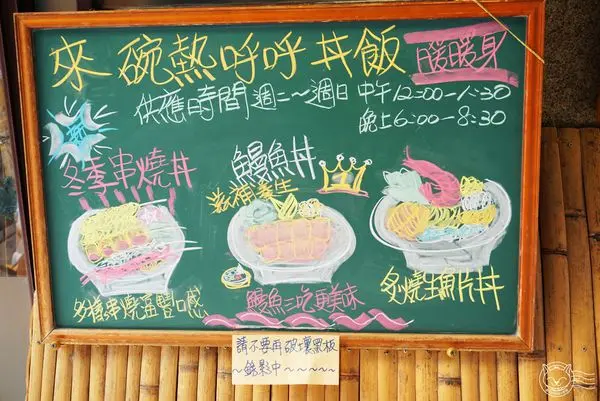 來碗熱呼呼丼飯
暖暖身
供應時間 週二～週日 中午12:00-1:30
晚上6:00-8:30
新
冬季串燒丼
鰻魚丼
1
滋補養生
多樣串燒豐富口感
鰻魚三吃更美味
炙燒生魚片丼
請不要再破壞黑板
～錄影中～～～～～